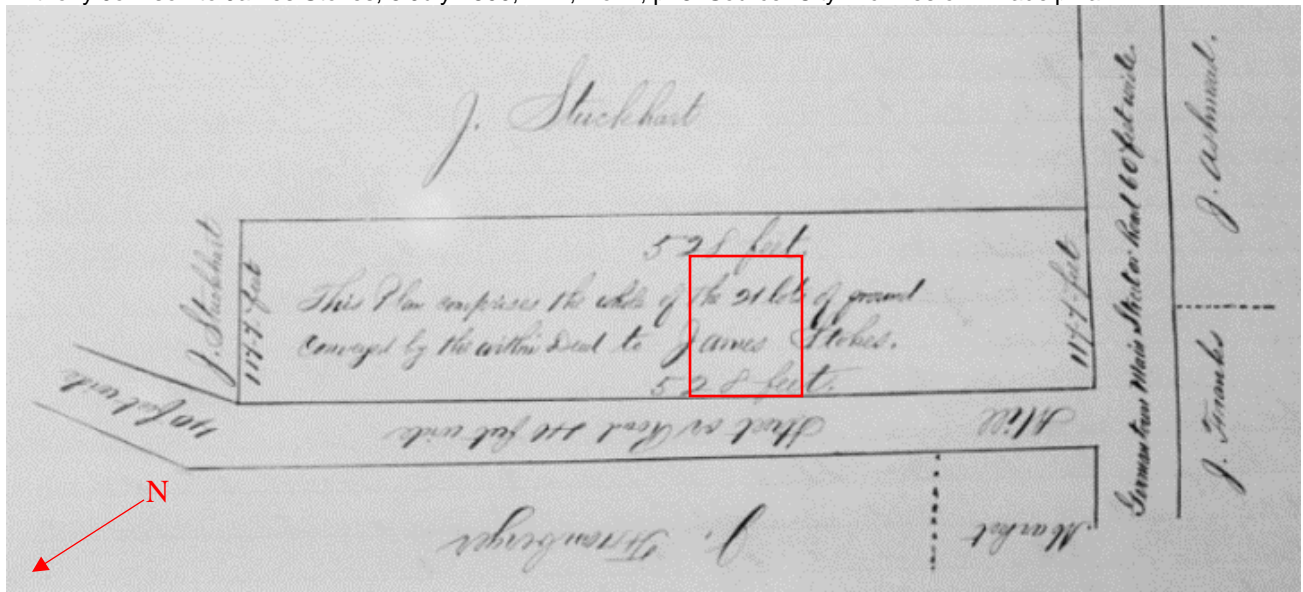 J. Stuckhart
J. Stuckhart
117-7-feet
528 feet.
This Plan comprises the whole of the 21 lots of ground
Conveyed by the within Deed to James Stokes.
528 feet.
117-7-feet
Germantown Main Street or Road 60 feet wide.
J. Ashmead.
J. Franks
40 feet wide
Mill Street or Road feet wide
Market
J.
N